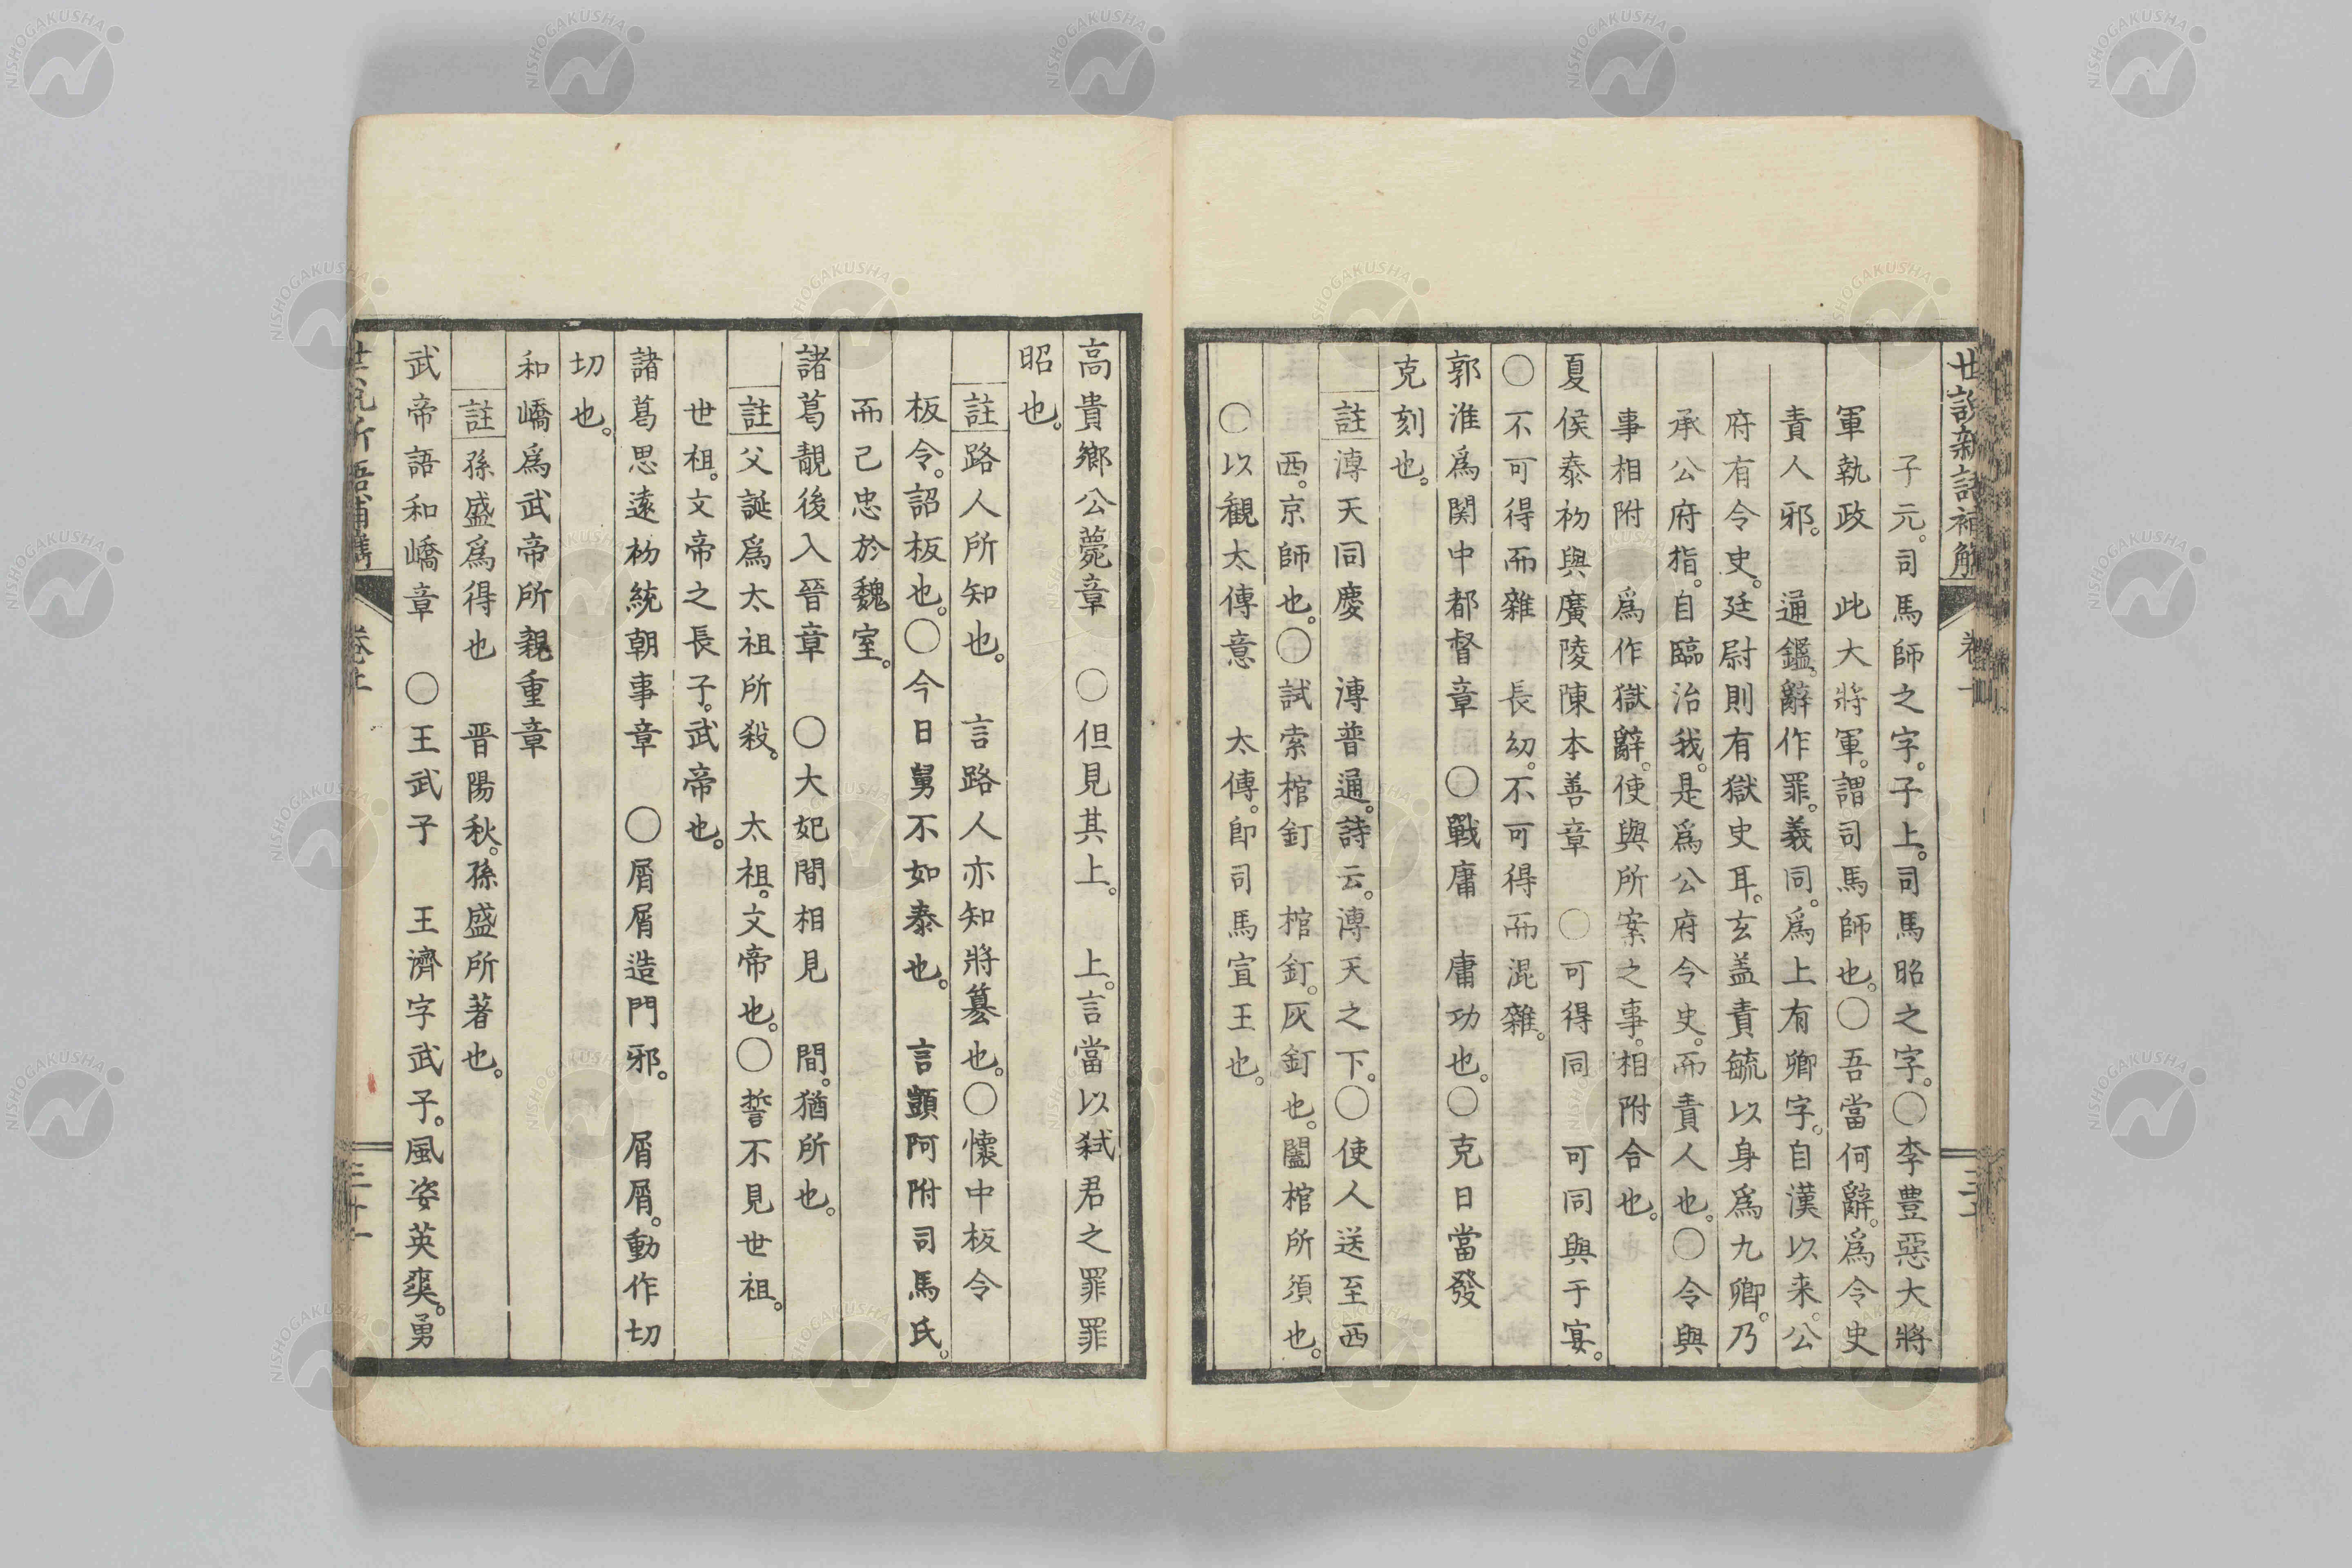 子元。司馬師之字。子上。司馬昭之字。〇李豊惡大將
軍執政　此大將軍。謂司馬師也。〇吾當何辭。爲令史
責人邪。　通鑑。辭作罪。義同。爲上有卿字。自漢以来。公
府有令史。廷尉則有獄史耳。玄盖責毓以身爲九卿。乃
承公府指。自臨治我。是爲公府令史。而責人也。〇令與
事相附　爲作獄辭。使與所案之事。相附合也。
夏侯泰初與廣陵陳本善章　〇可得同　可同與于宴。
〇不可得而雜　長幼。不可得而混雜。
郭淮爲関中都督章　〇戰庸　庸功也。〇克日當發
克刻也。
註溥天同慶　溥普通。詩云。溥天之下。〇使人送至西
西。京師也。〇試索棺釘　棺釘。灰釘也。闔棺所須也。
〇以観太傳意　太傳。即司馬宣王也。
高貴鄉公薨章　〇但見其上。　上。言當以弑君之罪罪
昭也。
註路人所知也。　言路人亦知將簒也。〇懷中板令
板令。詔板也。〇今日舅不如泰也。　言顗阿附司馬氏。
而己忠於魏室。
諸葛靚後入晉章　〇大妃間相見　間。猶所也。
註父誕爲太祖所殺。　太祖。文帝也。〇誓不見世祖。
世祖。文帝之長子。武帝也。
諸葛思遠初統朝事章　〇屑屑造門邪。　屑屑。動作切
切也。
和嶠爲武帝所親重章
註孫盛爲得也　晋陽秋。孫盛所著也。
武帝語和嶠章　〇王武子　王濟字武子。風姿英爽。勇
NISHOGAKUSHA